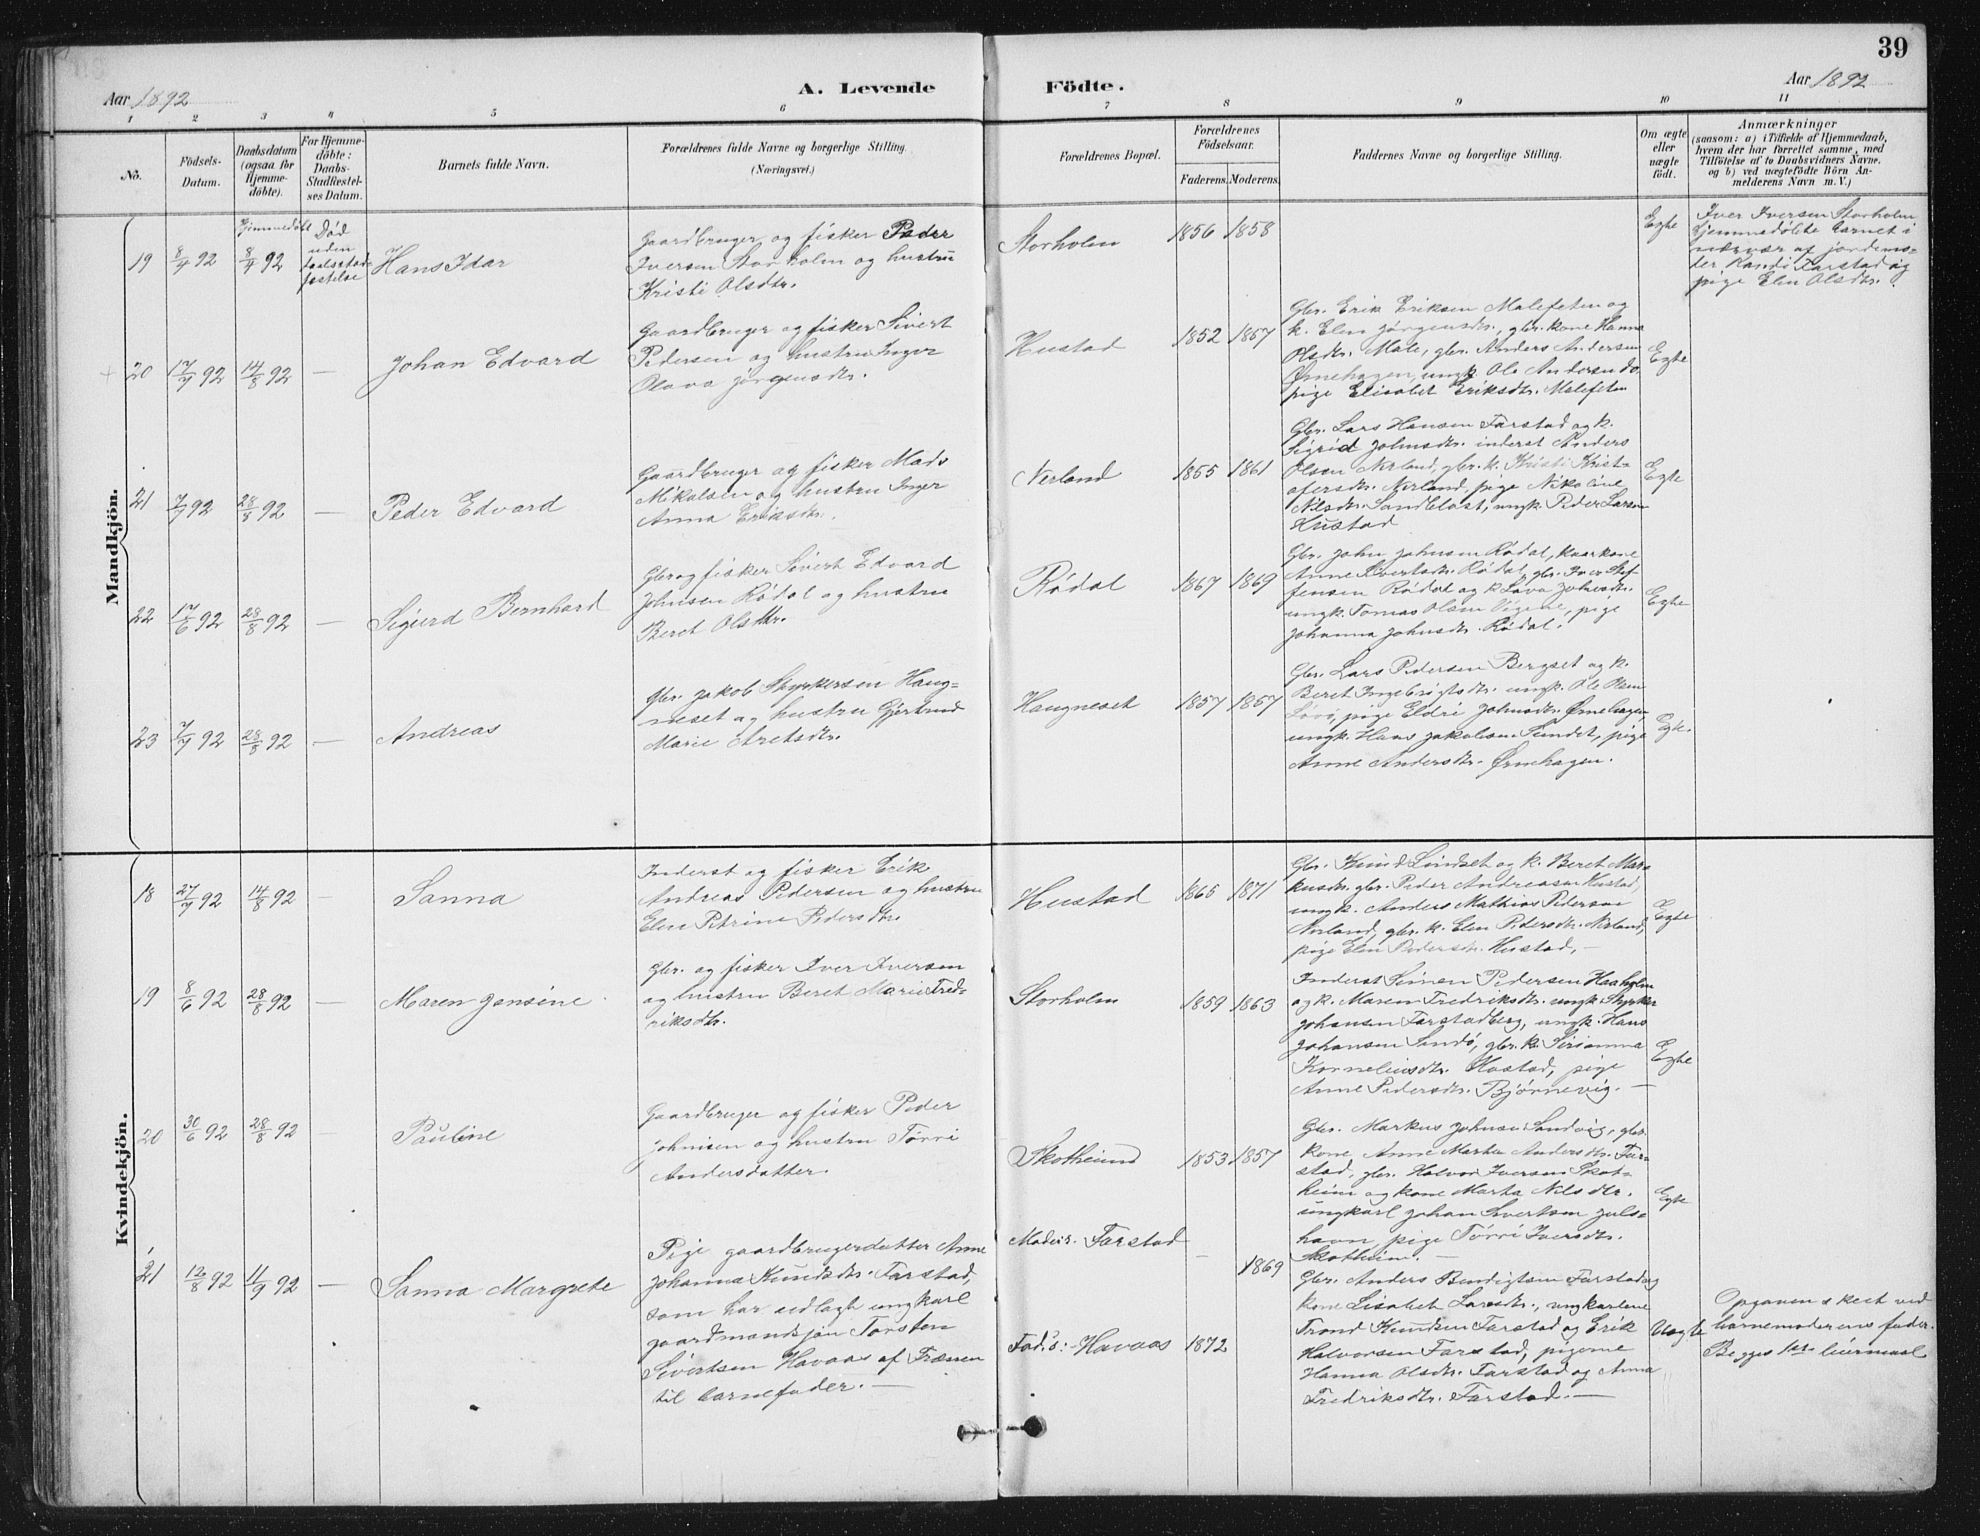 39
Aar 1892
A. Levende
Födte.
Aar 1892
1 2 3 4 5 6 7 8 9 10 11
No.
Födsels-
Datum.
Daabsdatum
(ogsaa for
Hjemme-
döbte).
For Hjemme-
döbte:
Daabs-
Stadfæstel-
ses Datum.
Barnets fulde Navn.
Forældrenes fulde Navne og borgerlige Stilling.
(Næringsvei.)
Forældrenes Bopæl.
Forældrenes
Födselsaar.
Faderens. Moderens.
Faddernes Navne og borgerlige Stilling.
Om ægte
eller
uægte
født.
Anmærkninger
(saasom: a) i Tilfælde af Hjemmedaab,
hvem der har forrettet samme, med
Tilföielse af to Daabsvidners Navne,
og b) ved uægtefödte Börn An-
melderens Navn m. V.)
Mandkjön.
19
8/7 92
Hjemmedöbt
8/7 92
Död
uden
daabsstad-
fæstelse
Hans Idar
Gaardbruger og fisker Peder
Iversen Storholm og hustru
Kristi Olsdtr.
Storholm
1856 1858
Egte
Iver Iversen Storholm
hjemmedöbte barnet i
nærvær af jordemo-
der Randi Farstad og
pige Elen Olsdtr.
20
17/7 92
14/8 92
—
Johan Edvard
Gaardbruger og fisker Sivert
Pedersen og hustru Inger
Olava Jörgensdtr.
Hustad
1852 1857
Gbr. Erik Eriksen Malefeten og
k. Elen Jörgensdtr., gbr. kone Hanna
Olsdtr. Male, gbr. Anders Andersen
Ørnehagen, ungk. Ole Andersen do.
pige Elisabet Eriksdtr. Malefeten
Egte
21
7/7 92
28/8 92
—
Peder Edvard
Gaardbruger og fisker Mads
Mikalsen og hustru Inger
Anna Eriksdtr.
Nerland
1855 1861
Gbr. Lars Hansen Farstad og k.
Sigrid Johnsdtr. inderst Anders
Olsen Nerland, gbr. k. Kristi Krist-
ofersdtr. Nerland, pige Nikoline
Nilsdtr. Sandblost, ungk. Peder Larsen
Hustad
Egte
22
17/6 92
28/8 92
—
Sigurd Bernhard
Gbr og fisker Sivert Edvard
Johnsen Rödal og hustru
Beret Olsdtr.
Rödal
1867 1869
Gbr. John Johnsen Rödal, kaarkone
Anne Sivertsdtr. Rödal, gbr. Iver Stef-
fensen Rödal og k. Lava Johnsdtr.
ungk. Tomas Olsen Vigene, pige
Johanna Johnsdtr. Rödal.
Egte
23
7/7 92
28/8 92
—
Andreas
Gbr. Jakob Styrkersen Haug-
neset og hustru Gjertrud
Marie Aretsdtr.
Haugneset
1857 1857
Gbr. Lars Pedersen Bergset og k.
Beret Ingebrigtsdtr. ungk. Ole Olsen
Lövö, pige Eldri Johnsdtr. Ørnehagen,
ungk. Hans Jakobsen Sundet, pige
Anne Andersdtr. Ørnehagen.
Egte
Kvindekjön.
18
27/7 92
14/8 92
—
Sanna
Inderst og fisker Erik
Andreas Pedersen og hustru
Elen Petrine Pedersdtr.
Hustad
1865 1871
Gbr. Knud Lindset og k. Beret Mar-
kusdtr. gbr. Peder Andreasen Hustad,
ungk. Anders Mathias Pedersen
Nerland, gbr. k. Elen Pedersdtr. Nerland,
pige Elen Pedersdtr. Hustad, —
Egte
19
8/6 92
28/8 92
—
Maren Jensine
Gbr. og fisker Iver Iversen
og hustru Beret Marie Fred-
riksdtr.
Storholm
1859 1863
Inderst Simon Pedersen Haaholm
og k. Maren Fredriksdtr. ungk. Styrker
Johansen Farstadberg, ungk. Hans
Johansen Sandö, gbr. k. Serianna
Korneliusdtr. Hustad, pige
Anne Pedersdtr. Bjørnevig. —
Egte
20
30/6 92
28/8 92
—
Pauline
Gaardbruger og fisker Peder
Johnsen og hustru Törri
Andersdatter.
Skotheim
1853 1857
Gbr. Markus Johnsen Sandvig, gbr.
kone Anne Marta Andersdtr. Far-
stad, gbr. Halvor Iversen Skot-
heim og kone Marta Nilsdtr.
ungkarl Johan Sivertsen Juls-
havn, pige Törri Iversdtr.
Skotheim. —
Egte
21
12/8 92
11/9 92
—
Sanna Margrete
Pige gaardbrugerdatter Anne
Johanna Knudsdtr. Farstad,
som har udlagt ungkarl
gaardmandsjön Torsten
Sivertsen Havaas af Frænen
til barnefader. —
Moder. Farstad
—
1869
Fad.s: Havaas 1872
Gbr. Anders Bendigtsen Farstad og
kone Lisabet Larsdtr., ungkarlene
Trond Knudsen Farstad og Erik
Halvorsen Farstad, pigerne
Hanna Olsdtr. Farstad og Anna
Fredriksdtr. Farstad. —
Uegte
Opgaven skeet ved
barnemoderens fader.
Begges 1ste leiermaal